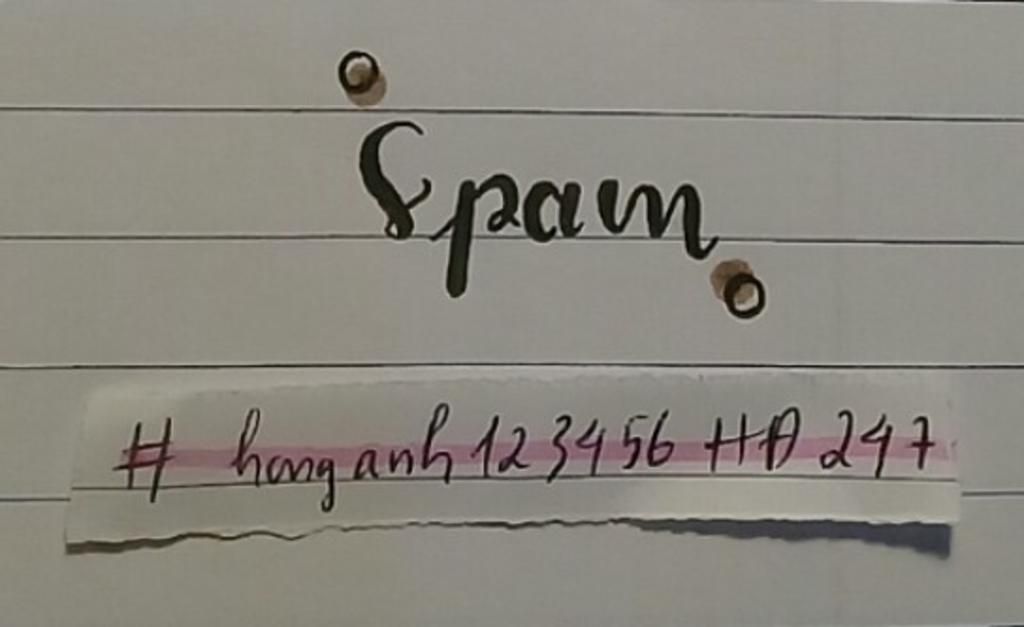 Spam
# honganh 123456 HA 247